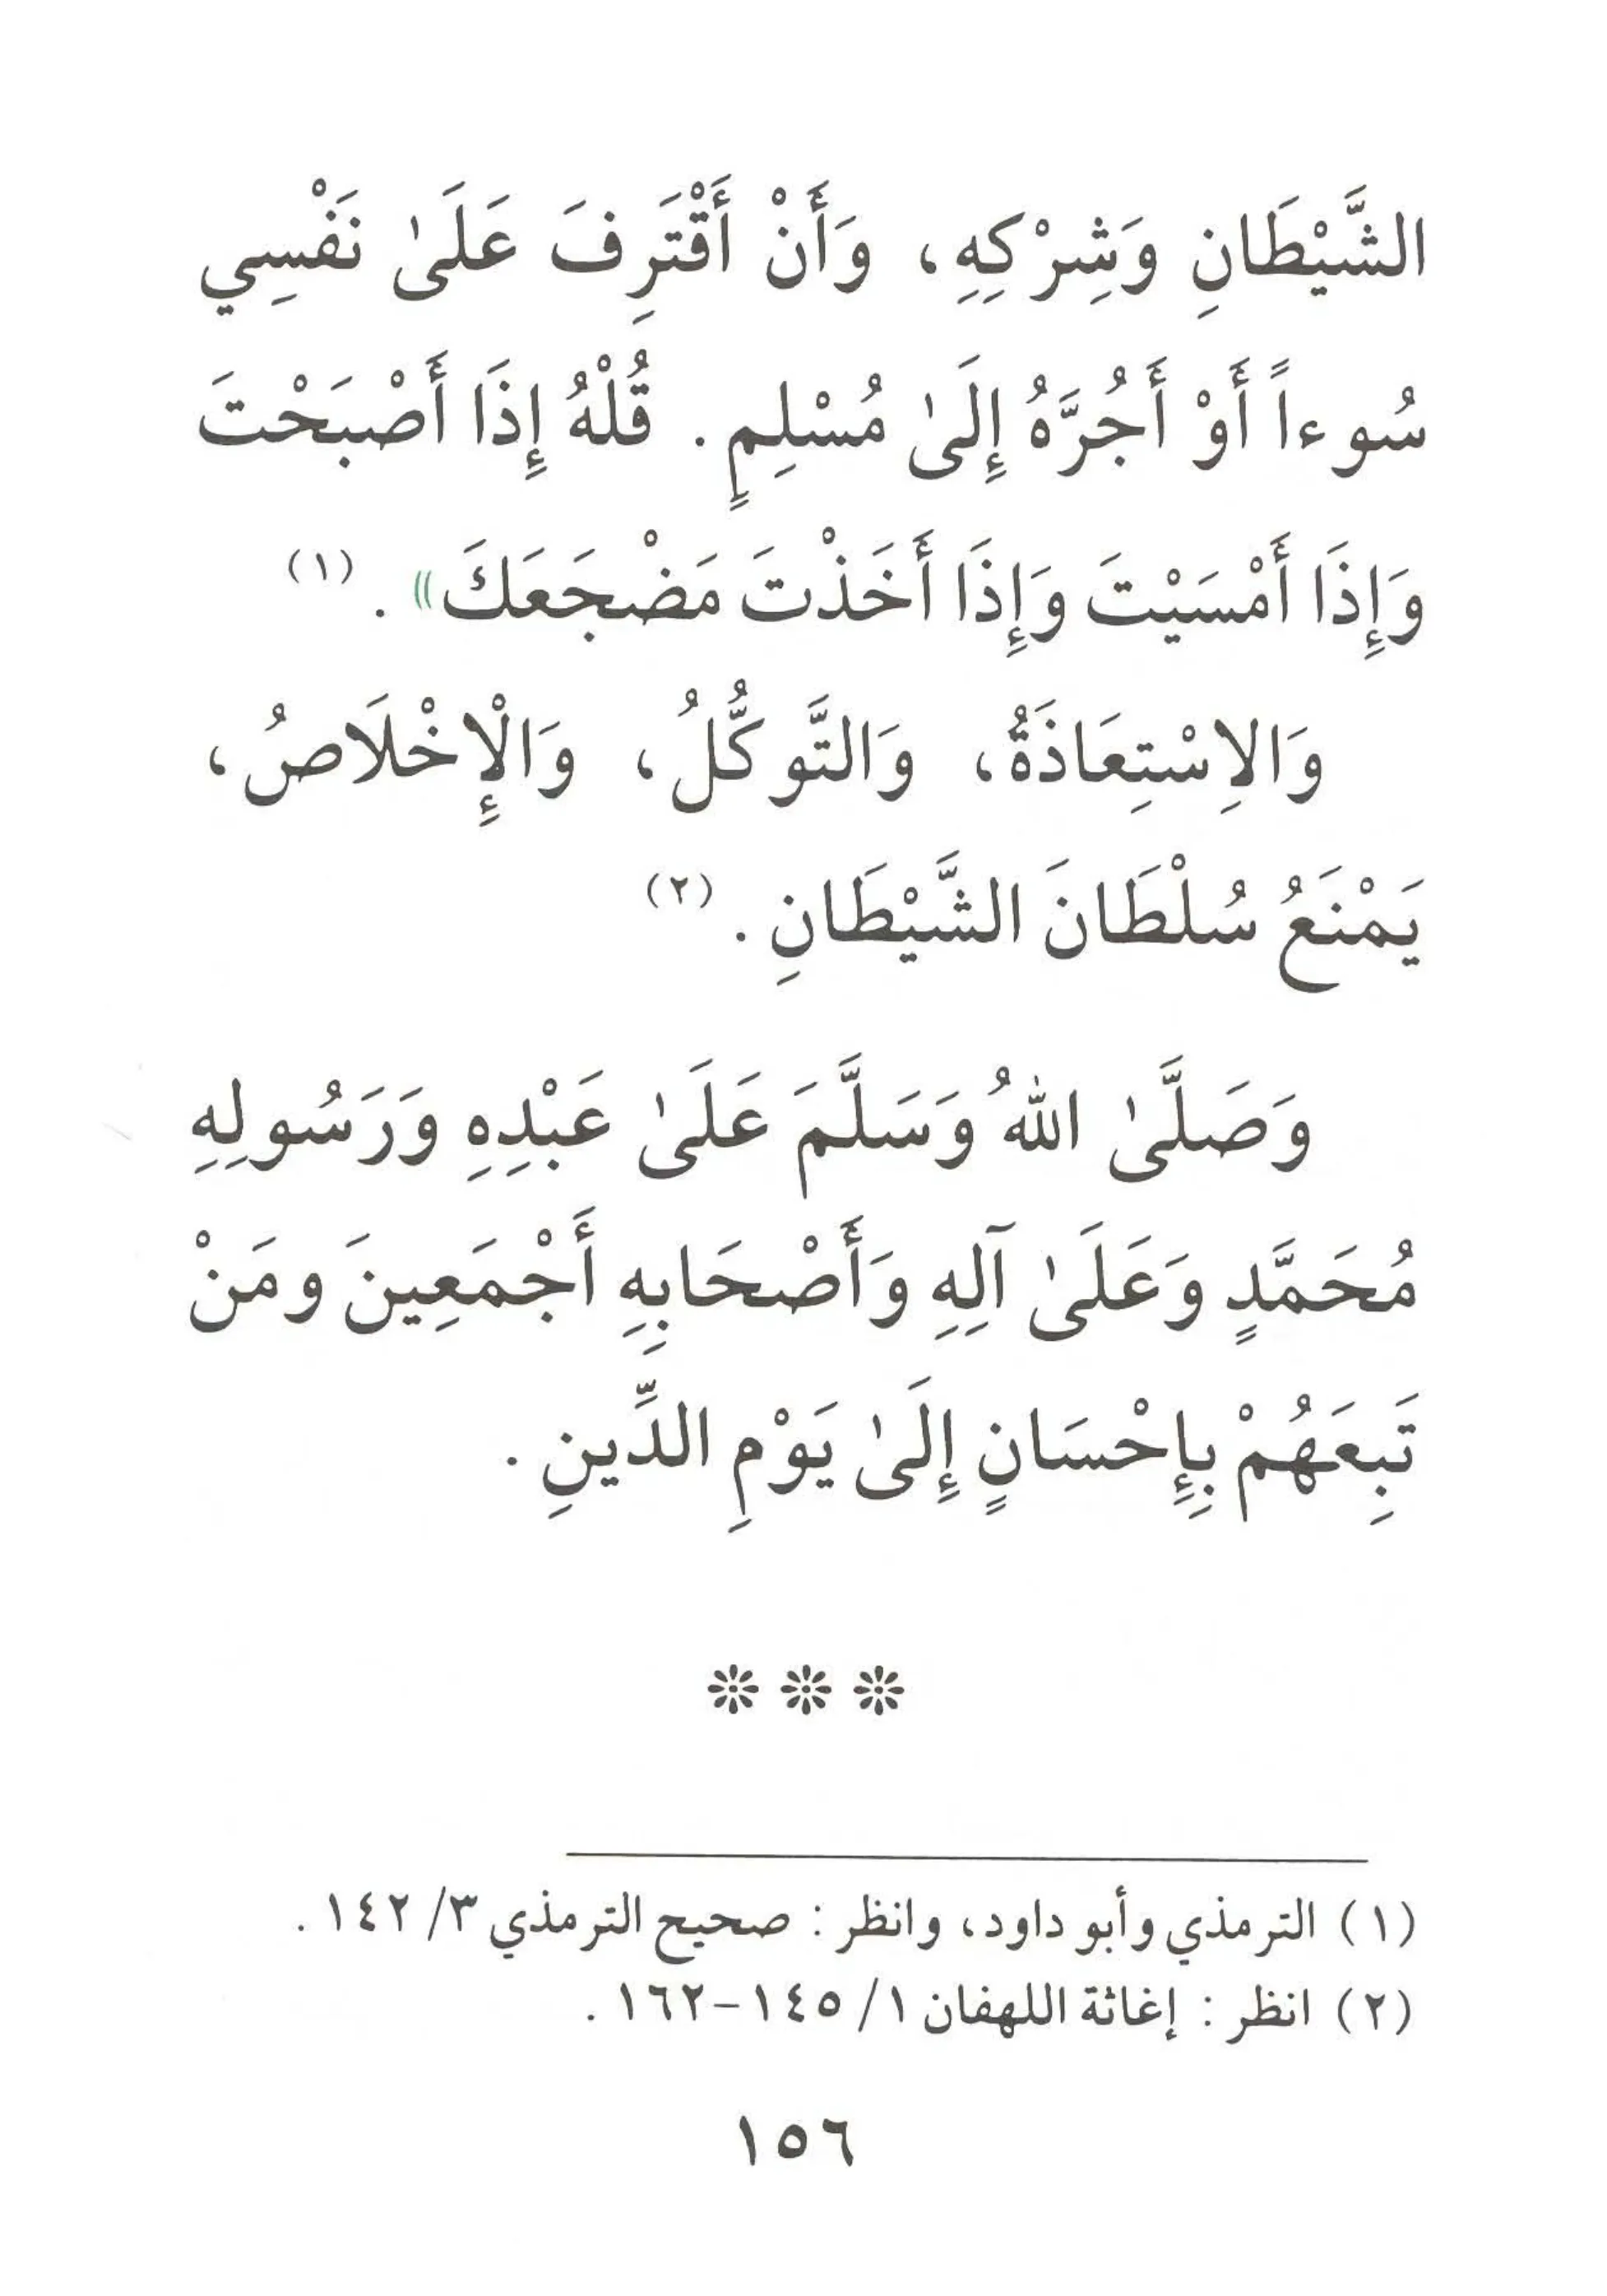 الشَّيْطَانِ وَشِرْكِهِ، وَأَنْ أَقْتَرِفَ عَلَىٰ نَفْسِي
سُوءاً أَوْ أَجُرَّهُ إِلَىٰ مُسْلِمٍ. قُلْهُ إِذَا أَصْبَحْتَ
وَإِذَا أَمْسَيْتَ وَإِذَا أَخَذْتَ مَضْجَعَكَ». (١)
وَالِاسْتِعَاذَةُ، وَالتَّوَكُّلُ، وَالْإِخْلَاصُ،
يَمْنَعُ سُلْطَانَ الشَّيْطَانِ. (٢)
وَصَلَّىٰ اللهُ وَسَلَّمَ عَلَىٰ عَبْدِهِ وَرَسُولِهِ
مُحَمَّدٍ وَعَلَىٰ آلِهِ وَأَصْحَابِهِ أَجْمَعِينَ ومَنْ
تَبِعَهُمْ بِإِحْسَانٍ إِلَىٰ يَوْمِ الدِّينِ.
(١) الترمذي وأبو داود، وانظر: صحيح الترمذي ٣/ ١٤٢.
(٢) انظر: إغاثة اللهفان ١/ ١٤٥-١٦٢.
١٥٦